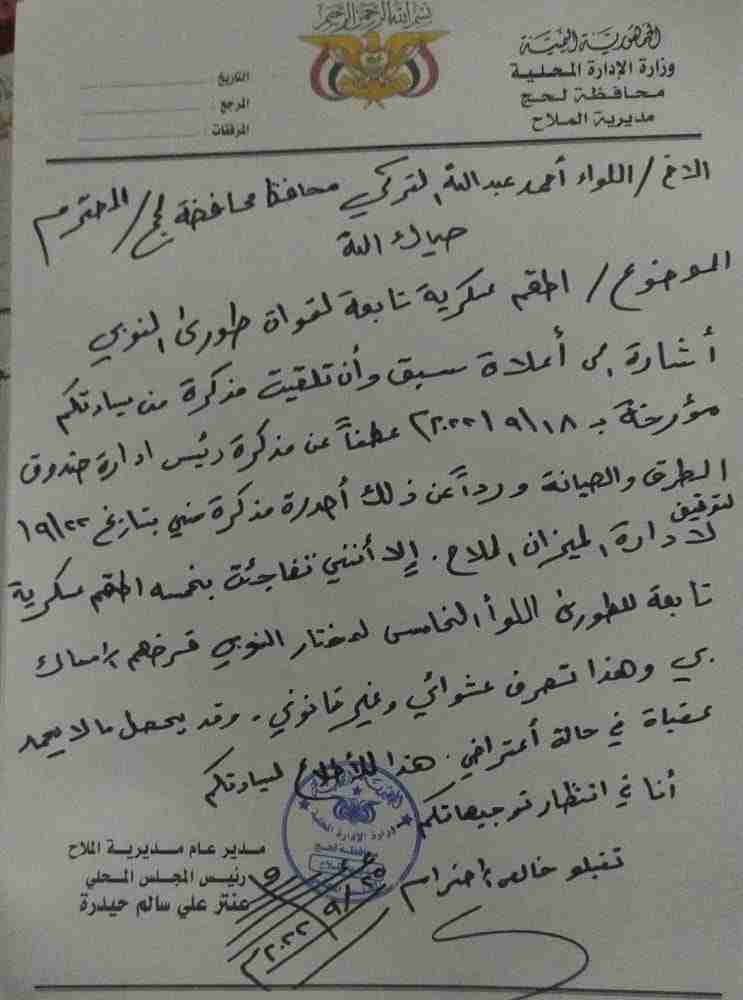 بسم الله الرحمن الرحيم
الجمهورية اليمنية
وزارة الإدارة المحلية
محافظة لحج
مديرية الملاح
التاريخ :
المرجع :
المرفقات :
الاخ / اللواء أحمد عبدالله التركي محافظ محافظة لحج / المحترم
حياك الله
الموضوع / اطقم عسكرية تابعة لقوات طورئ النوبي
أشارة الى أعلاة سبق وأن تلقيت مذكرة من سيادتكم
مؤرخة بـ ١٨ / ٩ / ٢٠٢٢ عطفاً عن مذكرة رئيس ادارة صندوق
الطرق والصيانة ورداً عن ذلك أصدرة مذكرة مني بتاريخ ٢٢ / ٩ ١
لتوقيف
لادارة الميزان الملاح . إلا أنني تفاجئت بخمسه اطقم عسكرية
تابعة للطورئ اللوأ الخامس لمختار النوبي غرضهم امساك
بي وهذا تصرف عشوائي وغير قانوني . وقد يحصل مالا يحمد
عقباة في حالة أعتراضي . هذا للأطلاع لسيادتكم
أنا في انتظار توجيهاتكم
تقبلو خالص احترام
مدير عام مديرية الملاح
رئيس المجلس المحلي
عنتر علي سالم حيدرة
وزارة الإدارة المحلية
محافظة لحج
٢٥ / ٩
٢٠٢٢